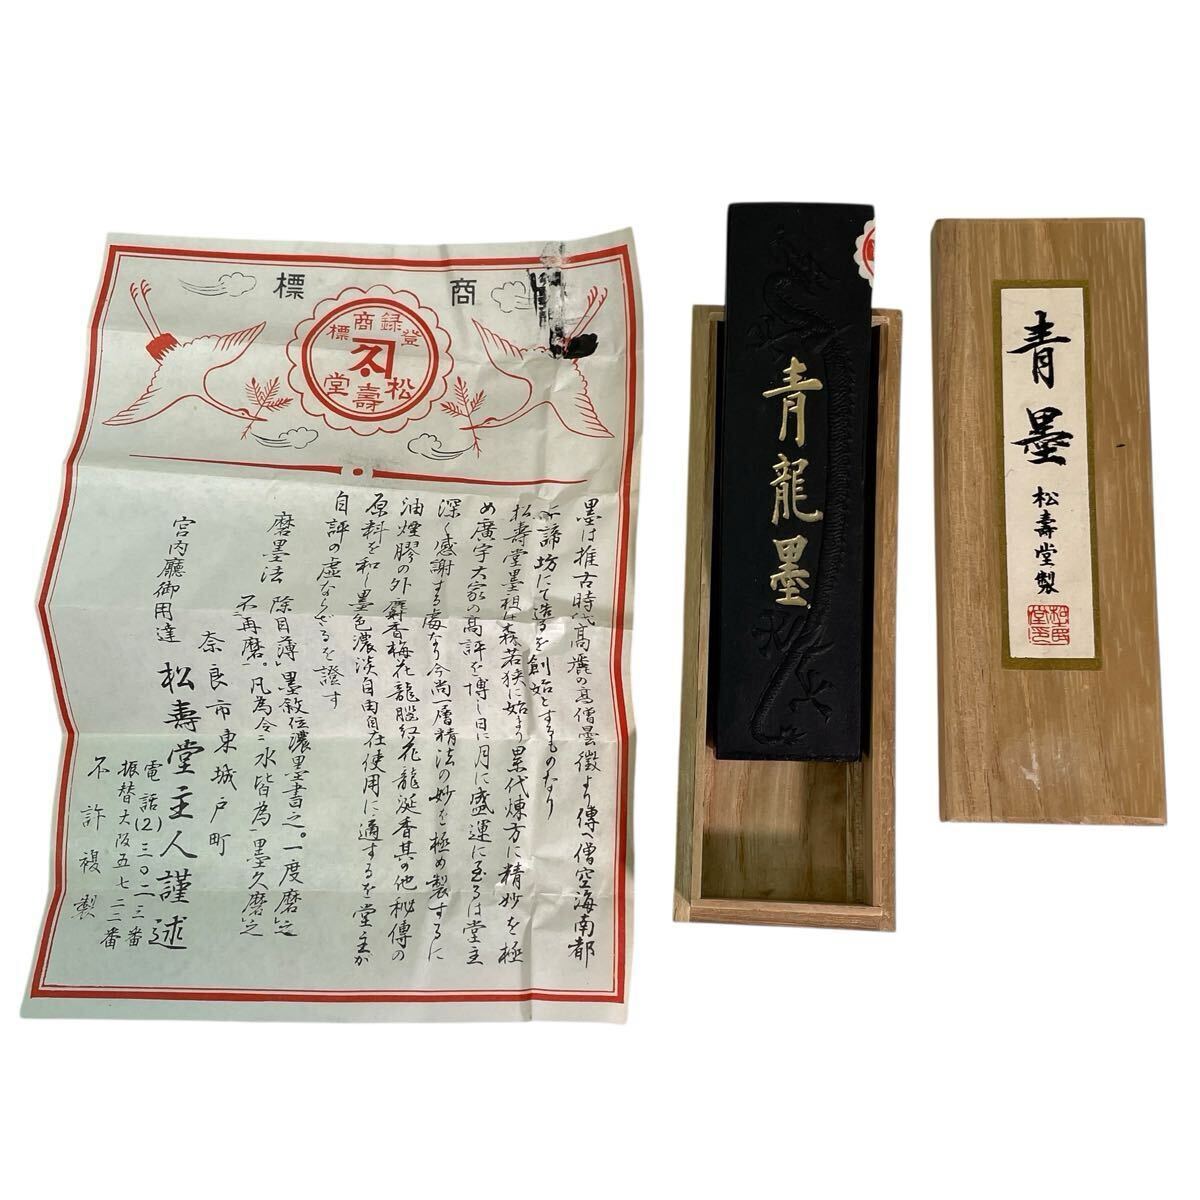 商標
登録商標
松壽堂
墨は推古時代高麗の高僧曇徴より傳へ僧空海南都
諦坊にて造るを創始とするものなり
松壽堂墨祖は森若狭に始まり累代煉方に精妙を極
め廣宇大家の高評を博し日に月に盛運に至るは堂主
深く感謝する處なり今尚一層精法の妙を極め製するに
油煙膠の外麝香梅花龍腦紅花龍涎香其の他秘傳の
原料を和し墨色濃淡自由自在使用に適するを堂主が
自評の虚ならざるを證す
磨墨法 除目薄墨敍位濃墨書之。一度磨之
不再磨。凡為令二水皆為一墨久磨之
奈良市東城戸町
宮内廳御用達 松壽堂主人謹述
電話(2)三〇二一三番
振替大阪五七二二番
不許複製
青龍墨
青墨
松壽堂製